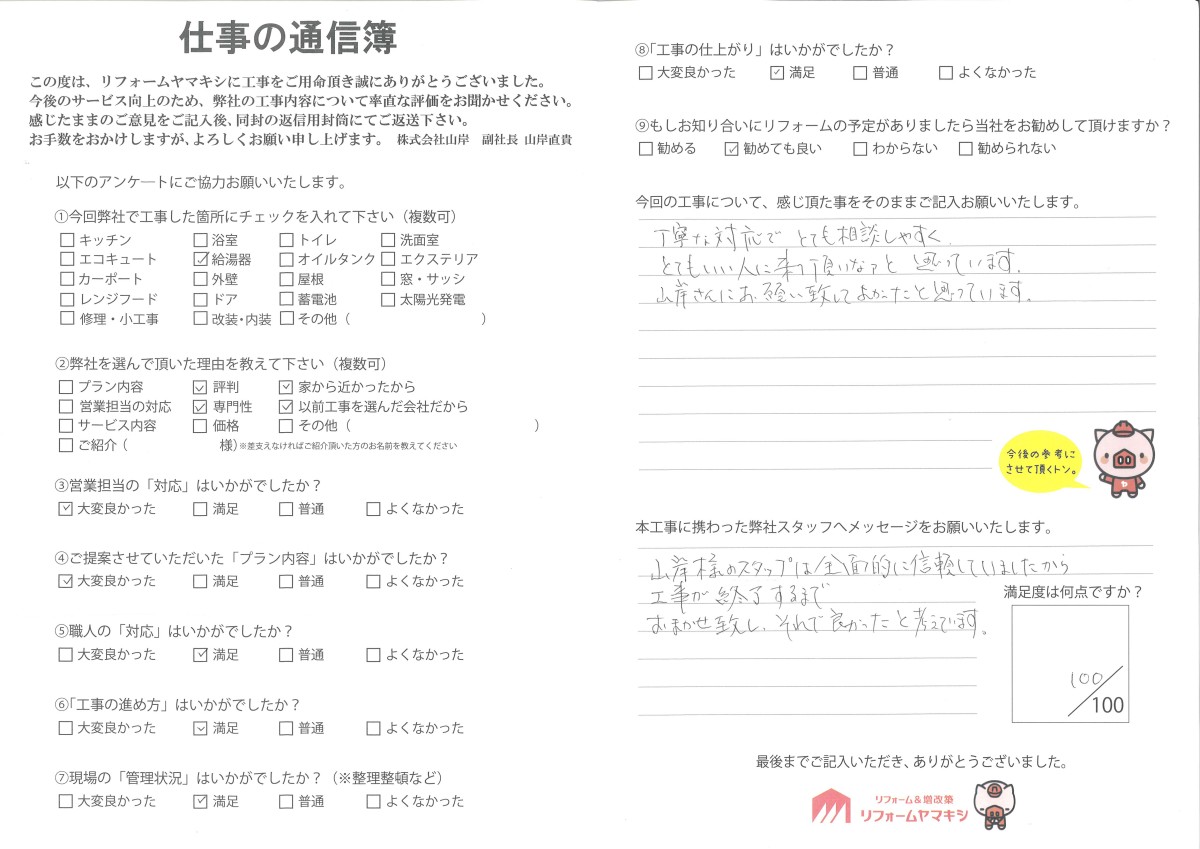 仕事の通信簿
この度は、リフォームヤマキシに工事をご用命頂き誠にありがとうございました。
今後のサービス向上のため、弊社の工事内容について率直な評価をお聞かせください。
感じたままのご意見をご記入後、同封の返信用封筒にてご返送下さい。
お手数をおかけしますが、よろしくお願い申し上げます。 株式会社山岸 副社長 山岸直貴
以下のアンケートにご協力お願いいたします。
①今回弊社で工事した箇所にチェックを入れて下さい（複数可）
□ キッチン □ 浴室 □ トイレ □ 洗面室
□ エコキュート ☑ 給湯器 □ オイルタンク □ エクステリア
□ カーポート □ 外壁 □ 屋根 □ 窓・サッシ
□ レンジフード □ ドア □ 蓄電池 □ 太陽光発電
□ 修理・小工事 □ 改装・内装 □ その他（ ）
②弊社を選んで頂いた理由を教えて下さい（複数可）
□ プラン内容 ☑ 評判 ☑ 家から近かったから
□ 営業担当の対応 ☑ 専門性 ☑ 以前工事を選んだ会社だから
□ サービス内容 □ 価格 □ その他（ ）
□ ご紹介（ 様）※差支えなければご紹介頂いた方のお名前を教えてください
③営業担当の「対応」はいかがでしたか？
☑ 大変良かった □ 満足 □ 普通 □ よくなかった
④ご提案させていただいた「プラン内容」はいかがでしたか？
☑ 大変良かった □ 満足 □ 普通 □ よくなかった
⑤職人の「対応」はいかがでしたか？
□ 大変良かった ☑ 満足 □ 普通 □ よくなかった
⑥「工事の進め方」はいかがでしたか？
□ 大変良かった ☑ 満足 □ 普通 □ よくなかった
⑦現場の「管理状況」はいかがでしたか？（※整理整頓など）
□ 大変良かった ☑ 満足 □ 普通 □ よくなかった
⑧「工事の仕上がり」はいかがでしたか？
□ 大変良かった ☑ 満足 □ 普通 □ よくなかった
⑨もしお知り合いにリフォームの予定がありましたら当社をお勧めして頂けますか？
□ 勧める ☑ 勧めても良い □ わからない □ 勧められない
今回の工事について、感じ頂た事をそのままご記入お願いいたします。
丁寧な対応で とても相談しやすく、
とてもいい人に来て頂いなっと 思っています。
山岸さんにお願い致してよかったと思っています。
今後の参考に
させて頂くトン。
本工事に携わった弊社スタッフへメッセージをお願いいたします。
山岸様のスタッフは全面的に信頼していましたから
工事が終了するまで
おまかせ致し、それで良かったと考えています。
満足度は何点ですか？
100/100
最後までご記入いただき、ありがとうございました。
リフォーム＆増改築
リフォームヤマキシ